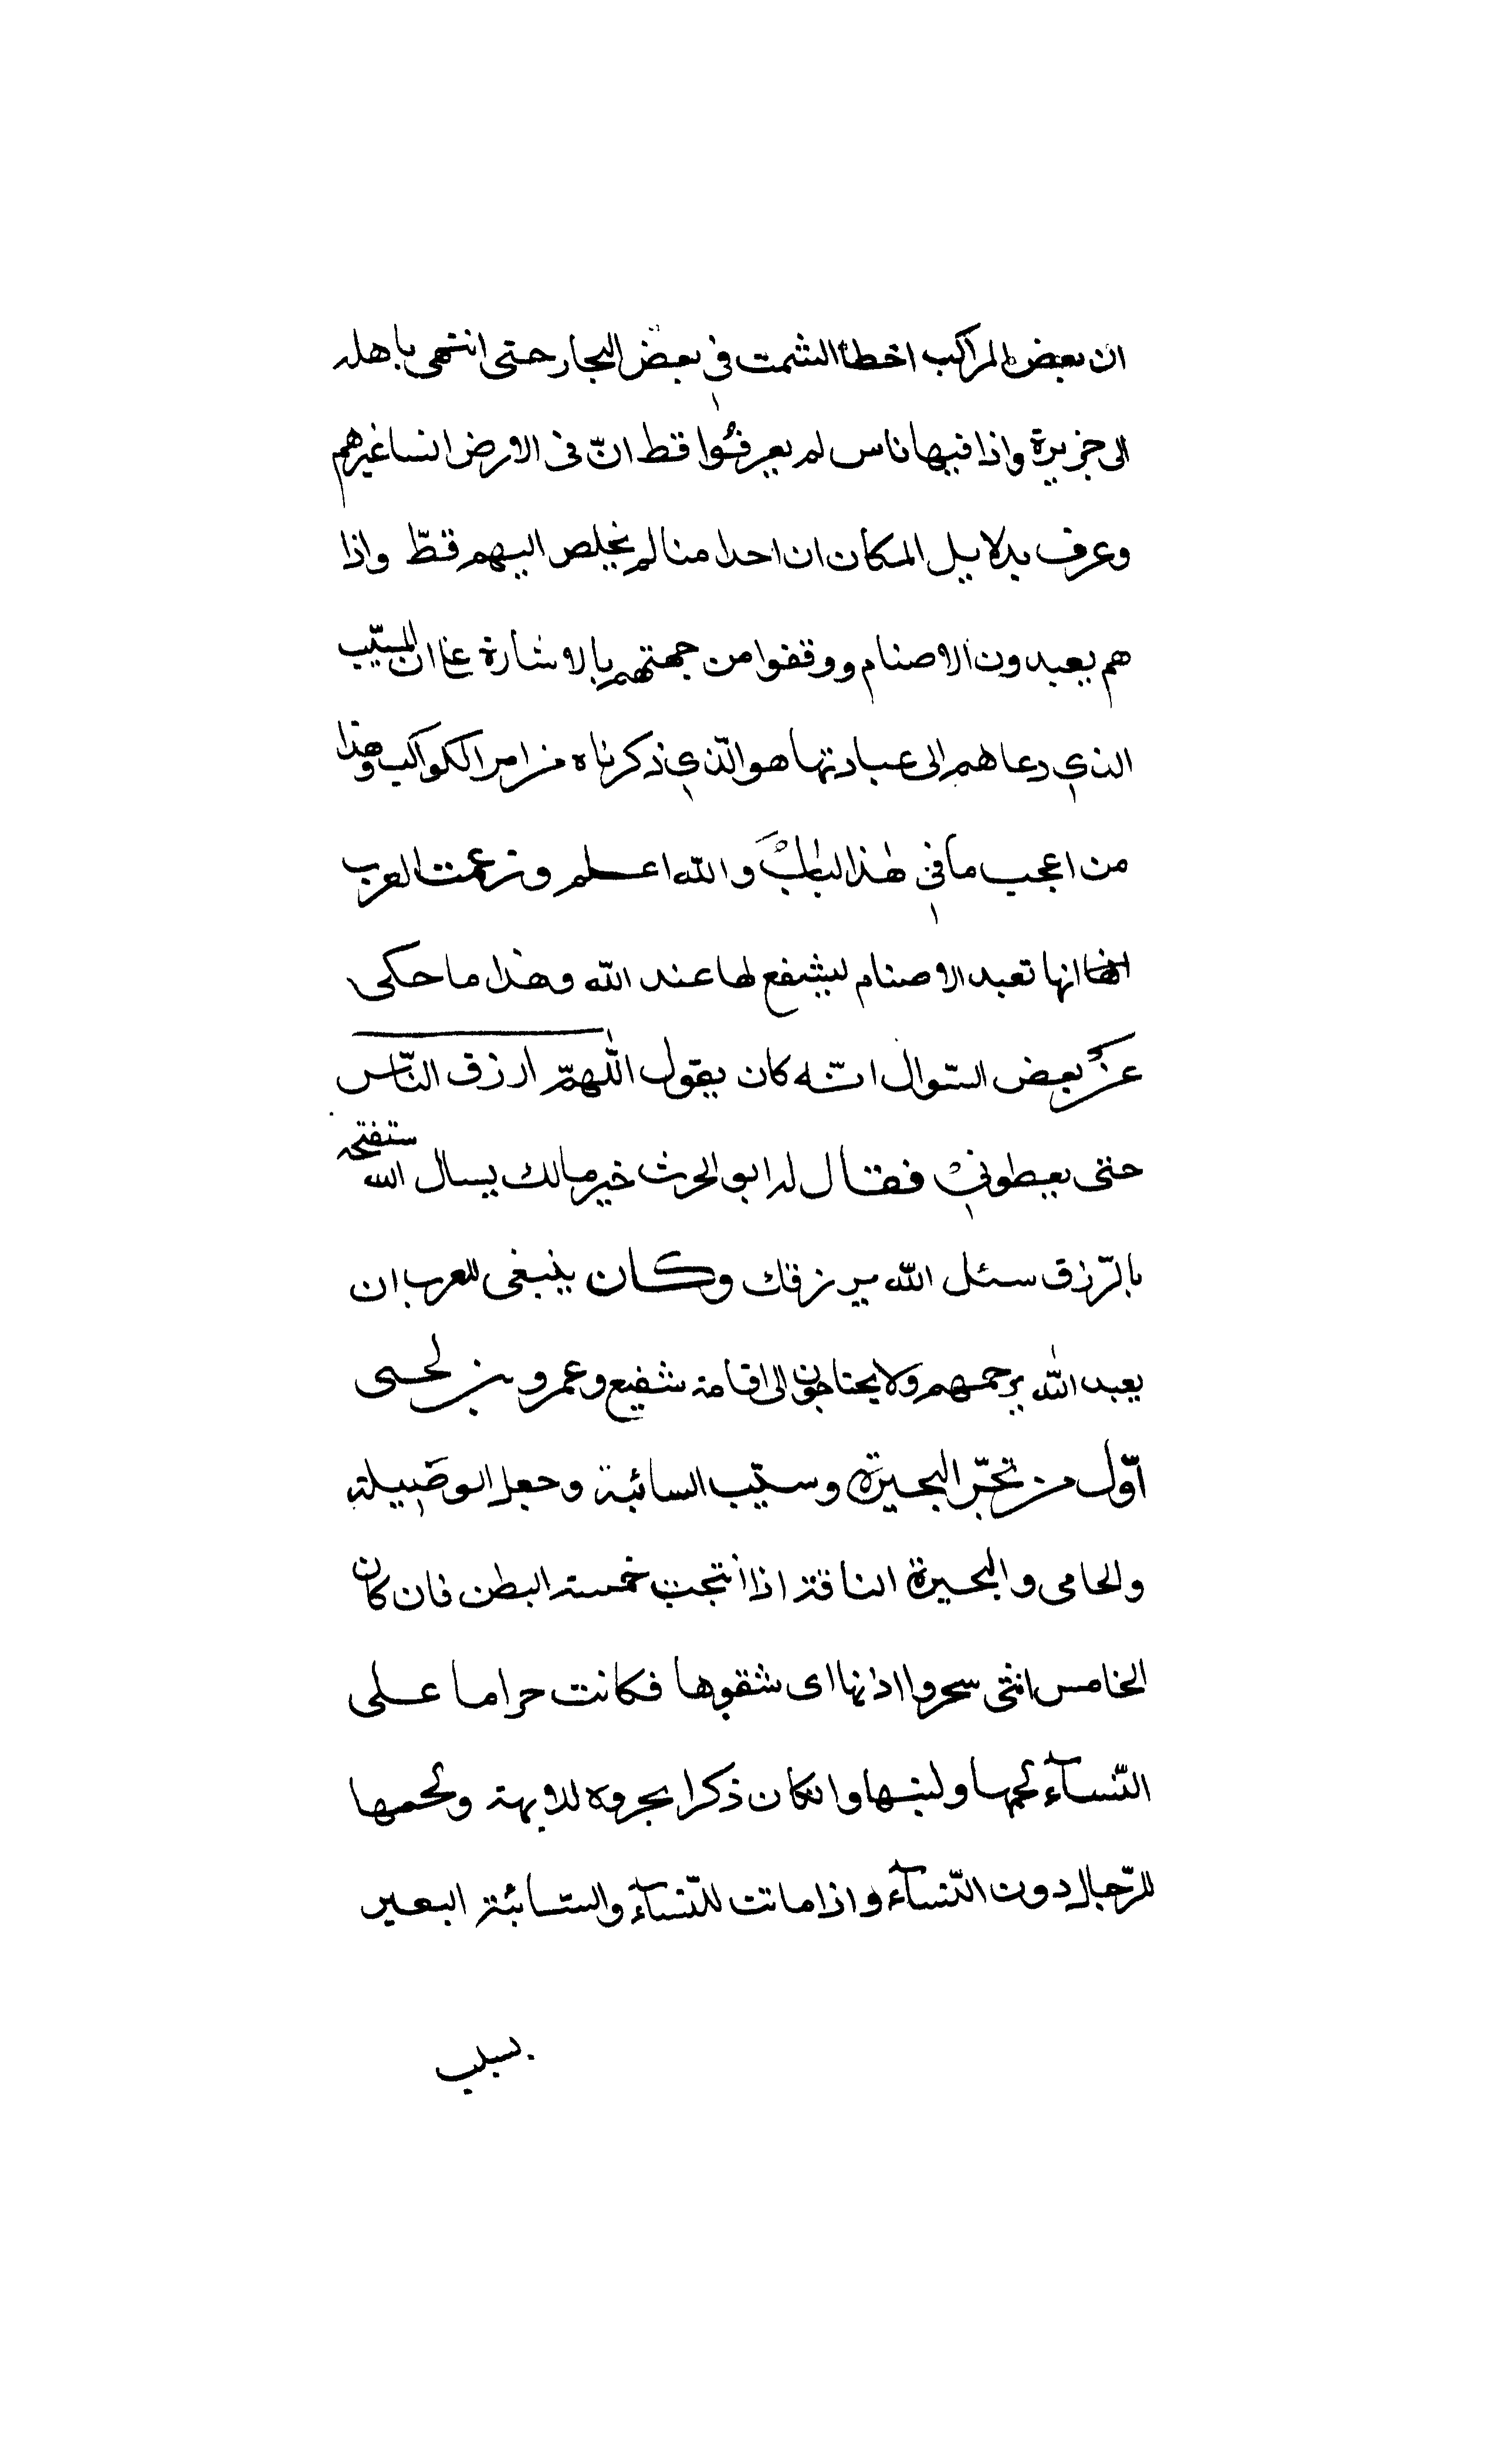 ان بعض المراكب اخطأ الشمت في بعض البحار حتى انتهى باهله
الى جزيرة واذا فيها ناس لم يعرفوا قط انّ في الارض انسا غيرهم
وعرف بدلايل المكان ان احدا منا لم يخلص اليهم قطّ واذا
هم يعبدون الاصنام ووقفوا من جهتهم بالاشارة على ان السبب
الذي دعاهم الى عبادتها هو الّذي ذكرناه من امر الكواكب وهذا
من اعجب ما في هذا الباب والله اعلم وزعمت العرب
انها انها تعبد الاصنام ليشفع لها عند الله وهذا ما حكى
عن بعض السّوال انّه كان يقول اللّهمّ ارزق النّاس
حتى يعطوني فقال له ابو الحرث خير مالك يسال الله ستفتحه
بالرّزق سئل الله يرزقك وكان ينبغي للعرب ان
يعبد الله يرحمهم ولا يحتاجون الى اقامة شفيع وعمرو بن لحى
اوّل من تحبّر البحيرة وسيّب السائبة وجعل الوصيلة
والحامى والبحيرة الناقة اذا انتجت خمسة البطن فان كان
الخامس انثى سحروا اذنها اى شقوها فكانت حراما على
النّساء لحمها ولبنها وان كان ذكرا بحروه للالهة ولحمها
للرّجال دون النّساء واذا ماتت للنّساء والسّائبة البعير
يسيب